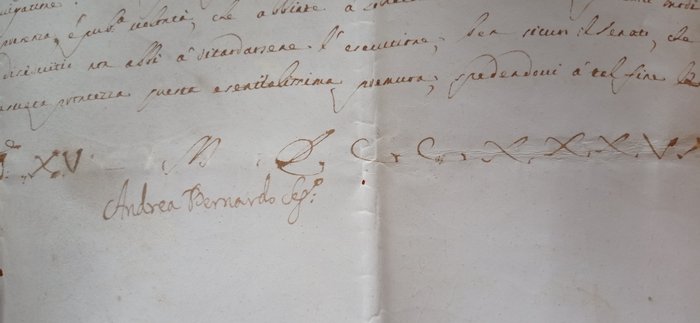 è pub.ca volontà, che abbiate à
non abbi à ritardarsene l'esecuzione; ben sicuro il Senato, che
prontezza questa essentialissima premura, spedendovi à tal fine le
XV M. D. C. C. X. X. X. V.
Andrea Bernardo Seg.o